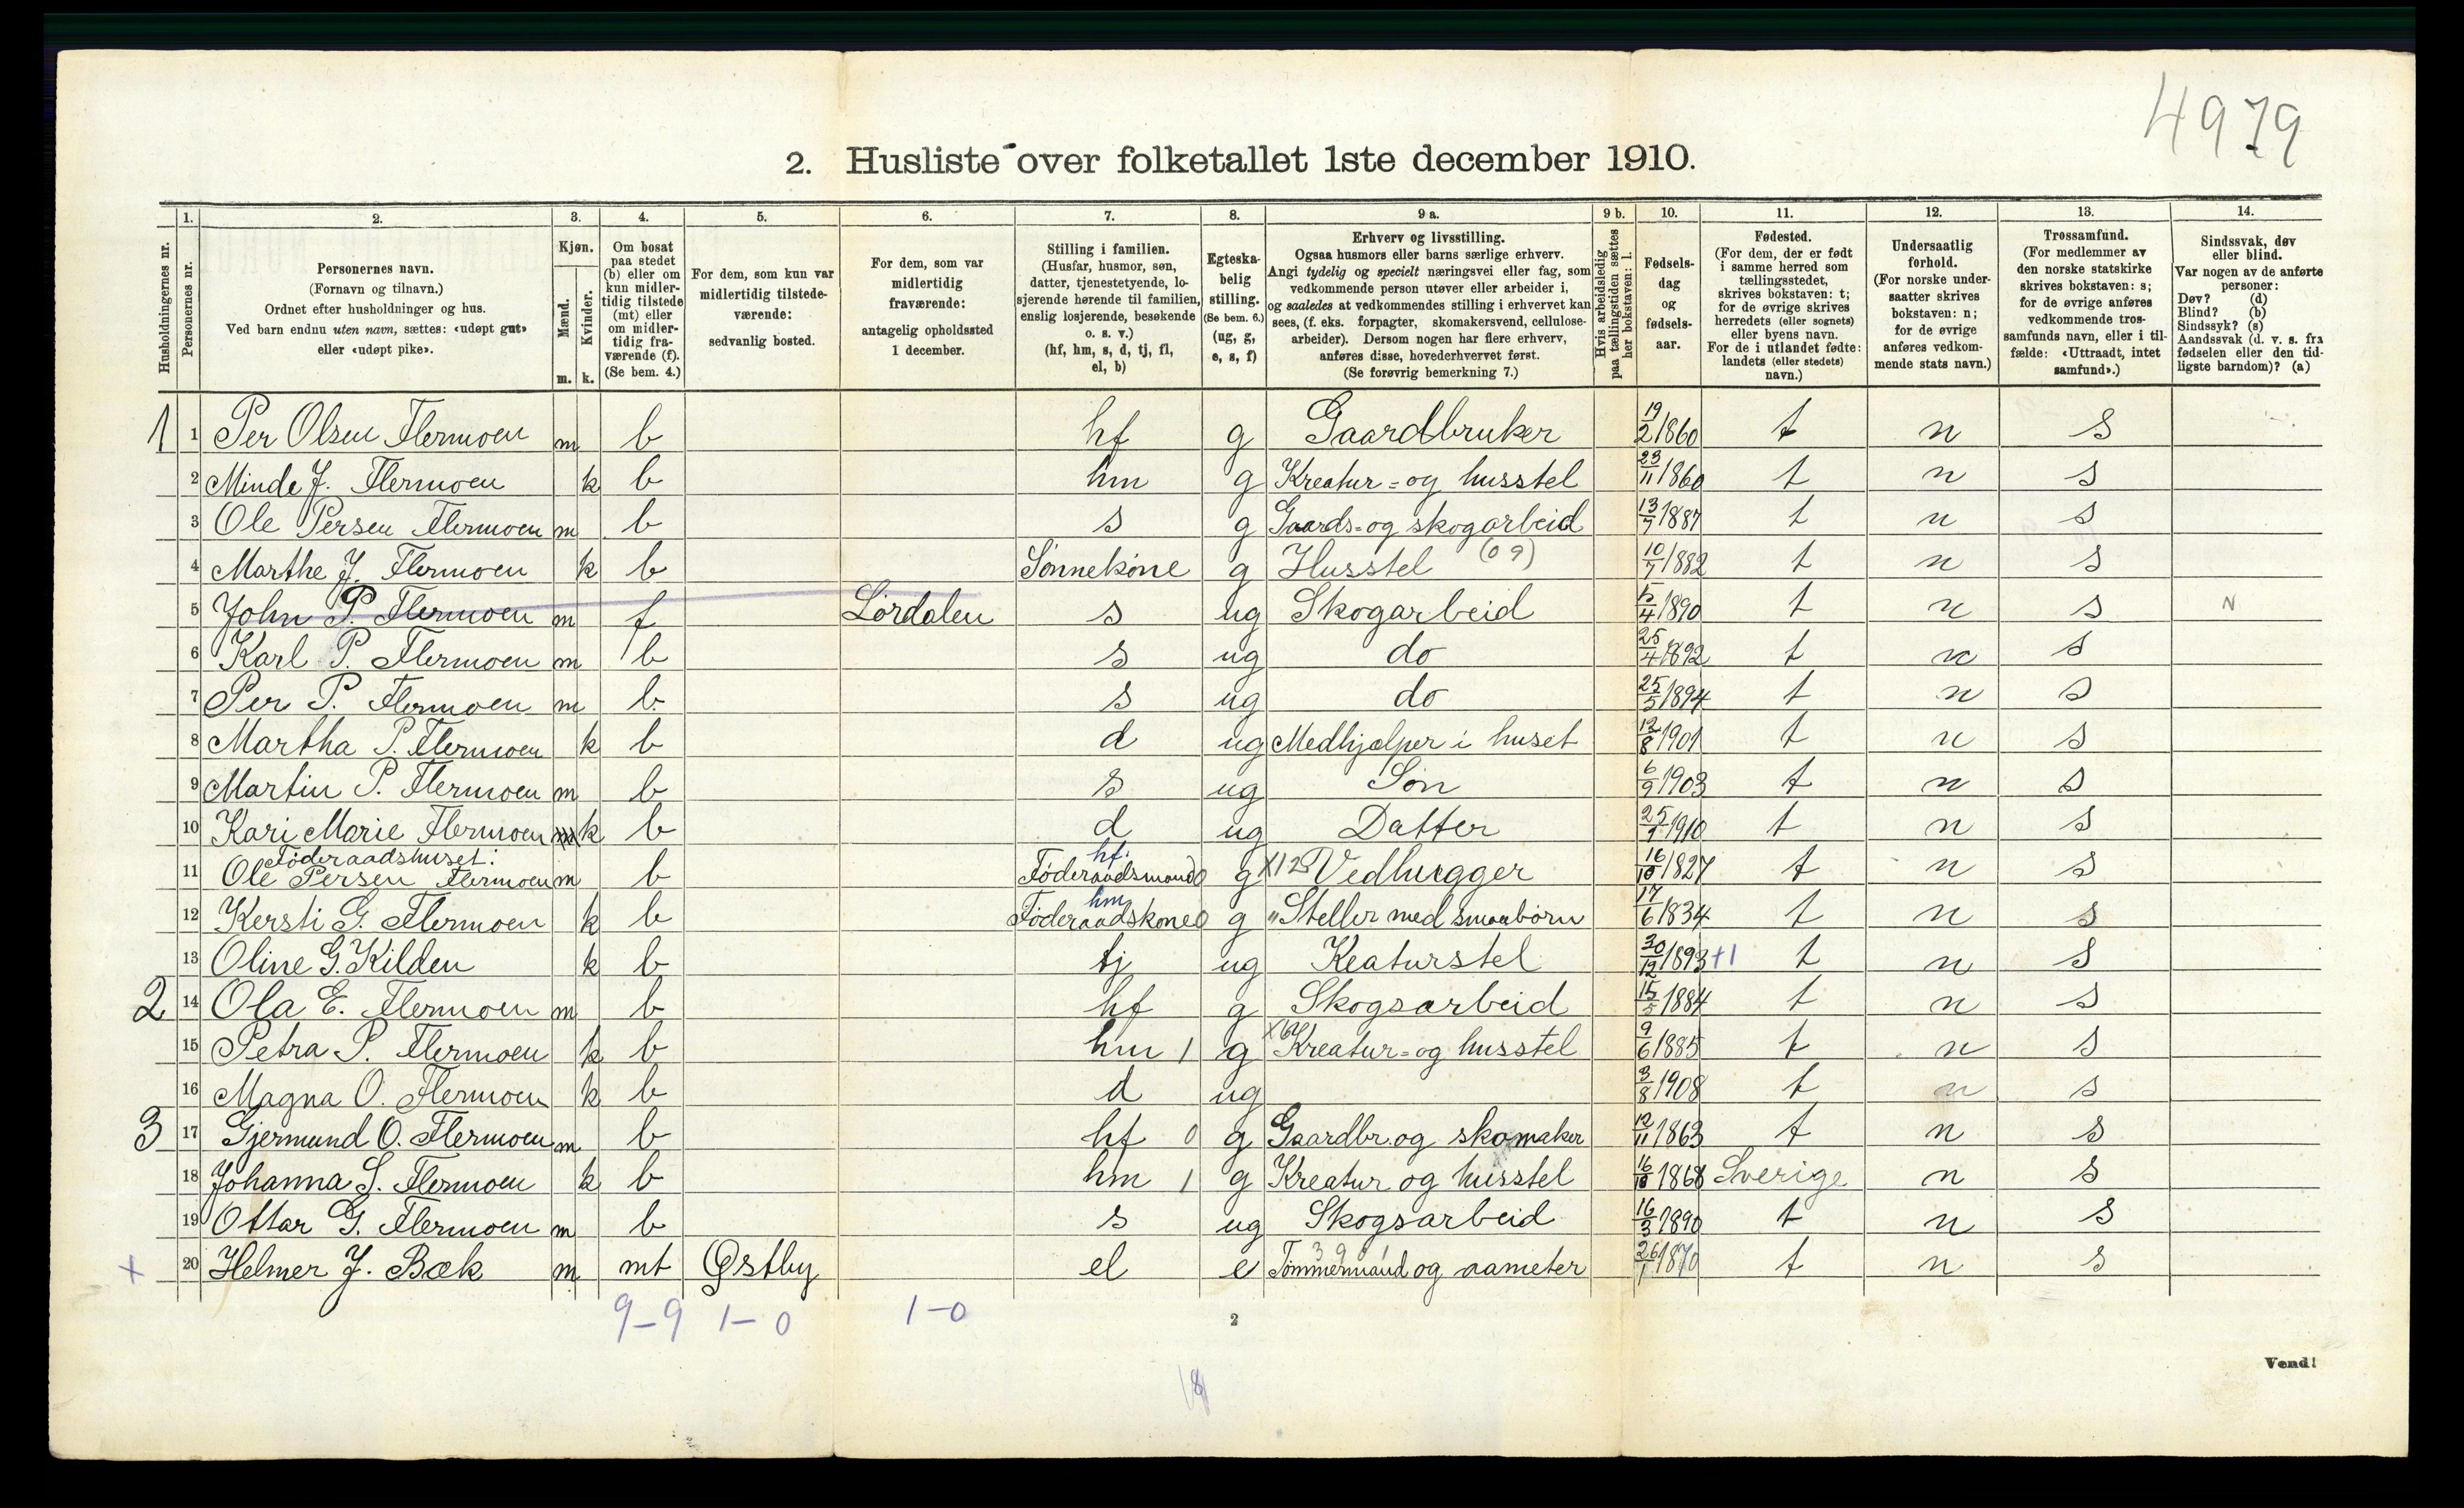 4979
2. Husliste over folketallet 1ste december 1910.
1. 2. 3. 4. 5. 6. 7. 8. 9 a. 9 b. 10. 11. 12. 13. 14.
Husholdningernes nr.
Personernes nr.
Personernes navn.
(Fornavn og tilnavn.)
Ordnet efter husholdninger og hus.
Ved barn endnu uten navn, sættes: «udøpt gut»
eller «udøpt pike».
Kjøn.
Mænd.
Kvinder.
m. k.
Om bosat
paa stedet
(b) eller om
kun midler-
tidig tilstede
(mt) eller
om midler-
tidig fra-
værende (f).
(Se bem. 4.)
For dem, som kun var
midlertidig tilstede-
værende:
sedvanlig bosted.
For dem, som var
midlertidig
fraværende:
antagelig opholdssted
1 december.
Stilling i familien.
(Husfar, husmor, søn,
datter, tjenestetyende, lo-
sjerende hørende til familien,
enslig losjerende, besøkende
o. s. v.)
(hf, hm, s, d, tj, fl,
el, b)
Egteska-
belig
stilling.
(Se bem. 6.)
(ug, g,
e, s, f)
Erhverv og livsstilling.
Ogsaa husmors eller barns særlige erhverv.
Angi tydelig og specielt næringsvei eller fag, som
vedkommende person utøver eller arbeider i,
og saaledes at vedkommendes stilling i erhvervet kan
sees, (f. eks. forpagter, skomakersvend, cellulose-
arbeider). Dersom nogen har flere erhverv,
anføres disse, hovederhvervet først.
(Se forøvrig bemerkning 7.)
Hvis arbeidsledig
paa tællingstiden sættes
her bokstaven: l.
Fødsels-
dag
og
fødsels-
aar.
Fødested.
(For dem, der er født
i samme herred som
tællingsstedet,
skrives bokstaven: t;
for de øvrige skrives
herredets (eller sognets)
eller byens navn.
For de i utlandet fødte:
landets (eller stedets)
navn.)
Undersaatlig
forhold.
(For norske under-
saatter skrives
bokstaven: n;
for de øvrige
anføres vedkom-
mende stats navn.)
Trossamfund.
(For medlemmer av
den norske statskirke
skrives bokstaven: s;
for de øvrige anføres
vedkommende tros-
samfunds navn, eller i til-
fælde: «Uttraadt, intet
samfund».)
Sindssvak, døv
eller blind.
Var nogen av de anførte
personer:
Døv? (d)
Blind? (b)
Sindssyk? (s)
Aandssvak (d. v. s. fra
fødselen eller den tid-
ligste barndom)? (a)
1 1 Per Olsen Flermoen m b hf g Gaardbruker 19/2 1860 t n s
2 Minde J. Flermoen k b hm g Kreatur= og husstel 23/11 1860 t n s
3 Ole Persen Flermoen m b s g Gaards= og skogarbeid 13/7 1887 t n s
4 Marthe J. Flermoen k b Sønnekone g Husstel (09) 10/7 1882 t n s
5 John P. Flermoen m f Lördalen s ug Skogarbeid 5/4 1890 t n s N
6 Karl P. Flermoen m b s ug do 25/4 1892 t n s
7 Per P. Flermoen m b s ug do 25/5 1894 t n s
8 Martha P. Flermoen k b d ug Medhjælper i huset 12/8 1901 t n s
9 Martin P. Flermoen m b s ug Søn 6/9 1903 t n s
10 Kari Marie Flermoen k b d ug Datter 25/1 1910 t n s
Föderaadshuset: hf.
11 Ole Persen Flermoen m b Föderaadsmand 0 g X12 Vedhugger 16/10 1827 t n s
hm
12 Kersti G. Flermoen k b Föderaadskone 0 g " Steller med smaabörn 17/6 1834 t n s
13 Oline G. Kilden k b tj ug Keaturstel 30/12 1893 +1 t n s
2 14 Ola E. Flermoen m b hf g Skogsarbeid 15/5 1884 t n s
15 Petra P. Flermoen k b hm 1 g Kreatur= og husstel 9/6 1885 t n s
16 Magna O. Flermoen k b d ug 3/8 1908 t n s
3 17 Gjermund O. Flermoen m b hf 0 g Gaardbr. og skomaker 12/11 1863 t n s
18 Johanna S. Flermoen k b hm 1 g Kreatur og husstel 16/10 1868 Sverige n s
19 Ottar G. Flermoen m b s ug Skogsarbeid 16/3 1890 t n s
+ 20 Helmer J. Bæk m mt Østby el e Tömmermand og aameter 26/1 1870 t n s
9-9 1-0 1-0
2
8
Vend!